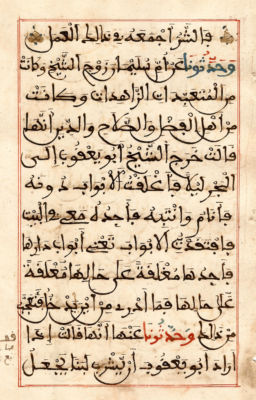 فالشر أجمعه في ذلك العمل
وحدثونا عن أم سليمان زوج الشيخ وكانت
من المتعبدات الزاهدات وكانت
من أهل الفضل والصلاح والدين أنها
قالت خرج الشيخ أبو يعقوب إلى
البحر ليلا فأغلقت الأبواب دونه
فأنام وأنتبه فأجده معي في البيت
فافتقدت الأبواب تعني أبواب دارها
فأجدها مغلقة على حالها مغلقة
على حالها فما أدري من أين يدخل
من ذلك وحدثونا عنها أنها قالت إذا
أراد أبو يعقوب أن يشرب لبنا يجعل